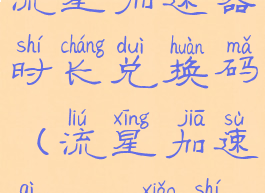 流星加速器
shí cháng duì huàn mǎ
时长兑换码
liú xīng jiā sù
（流星加速
qì xiǎo shí